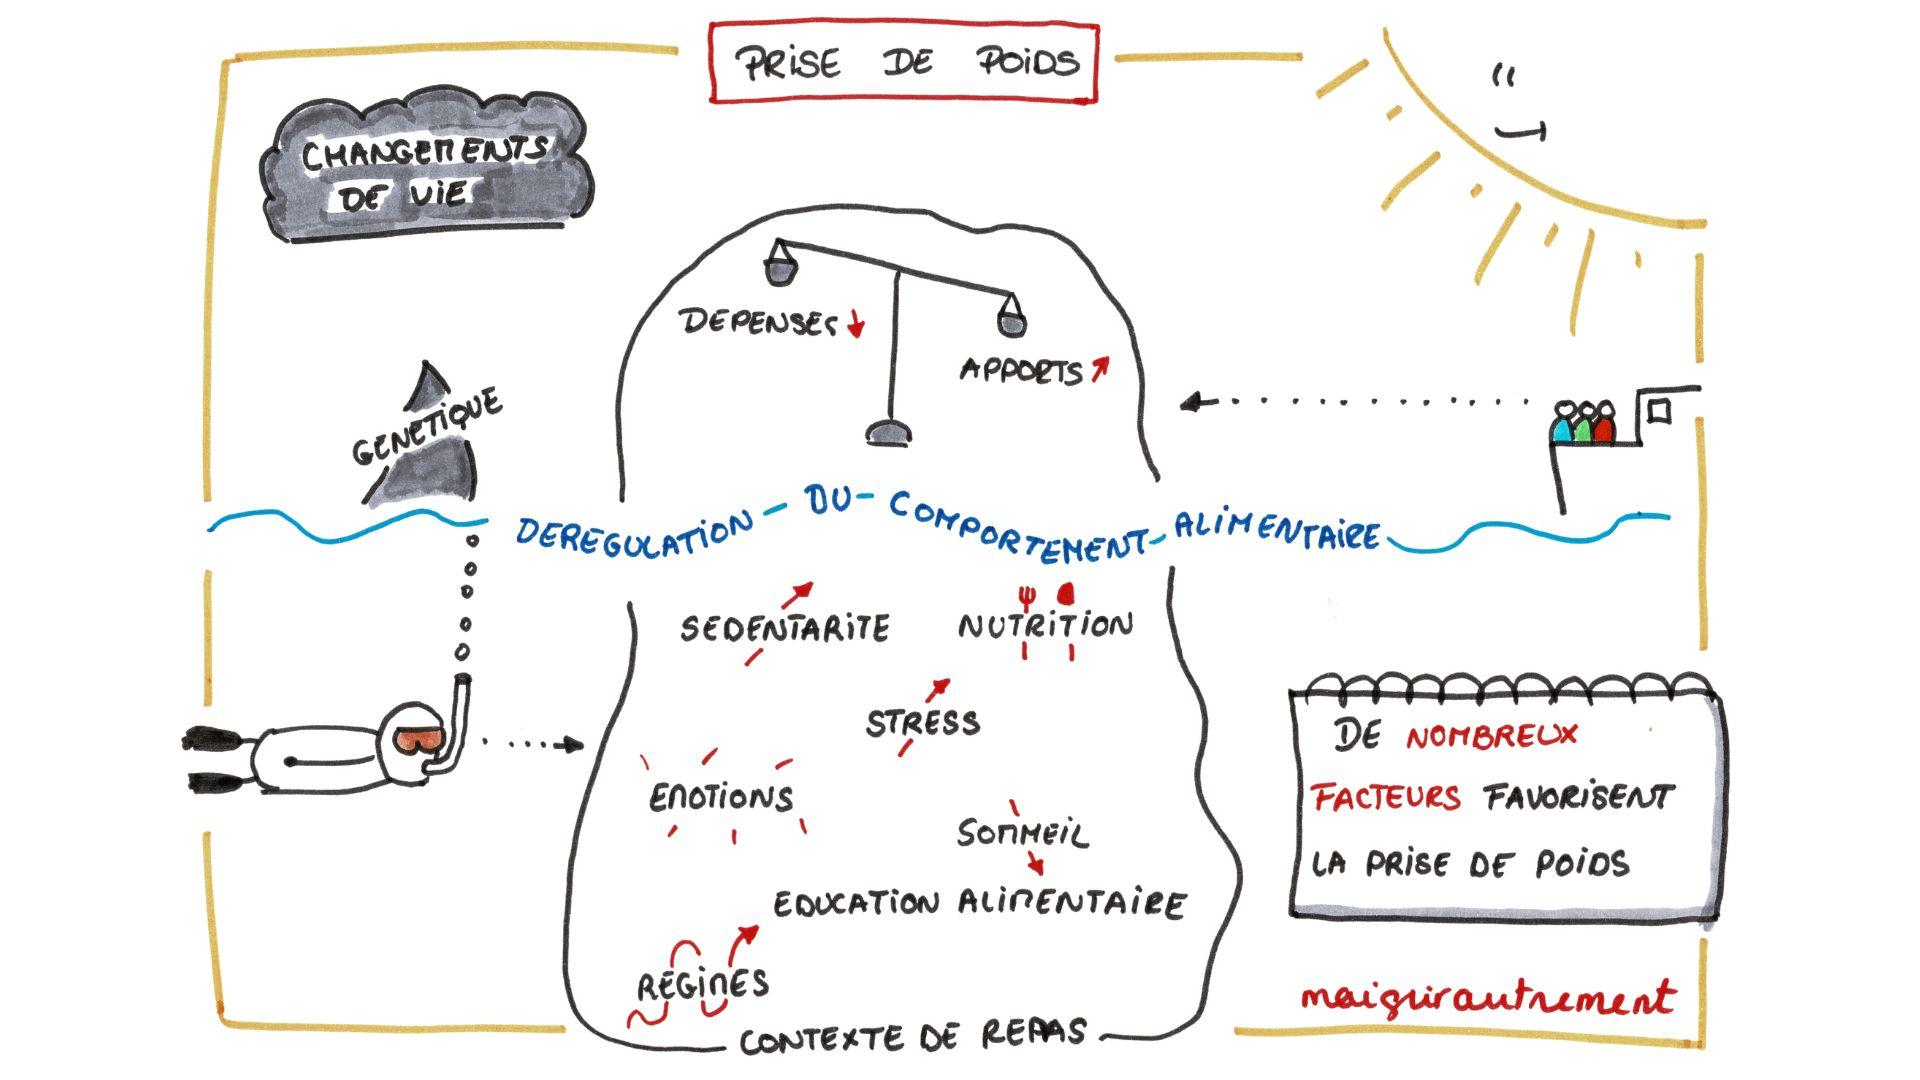 PRISE DE POIDS
CHANGEMENTS
DE VIE
DEPENSES
APPORTS
GENETIQUE
DEREGULATION - DU - COMPORTEMENT - ALIMENTAIRE
SEDENTARITE
NUTRITION
STRESS
EMOTIONS
SOMMEIL
EDUCATION ALIMENTAIRE
REGIMES
CONTEXTE DE REPAS
DE NOMBREUX
FACTEURS FAVORISENT
LA PRISE DE POIDS
maigrirautrement